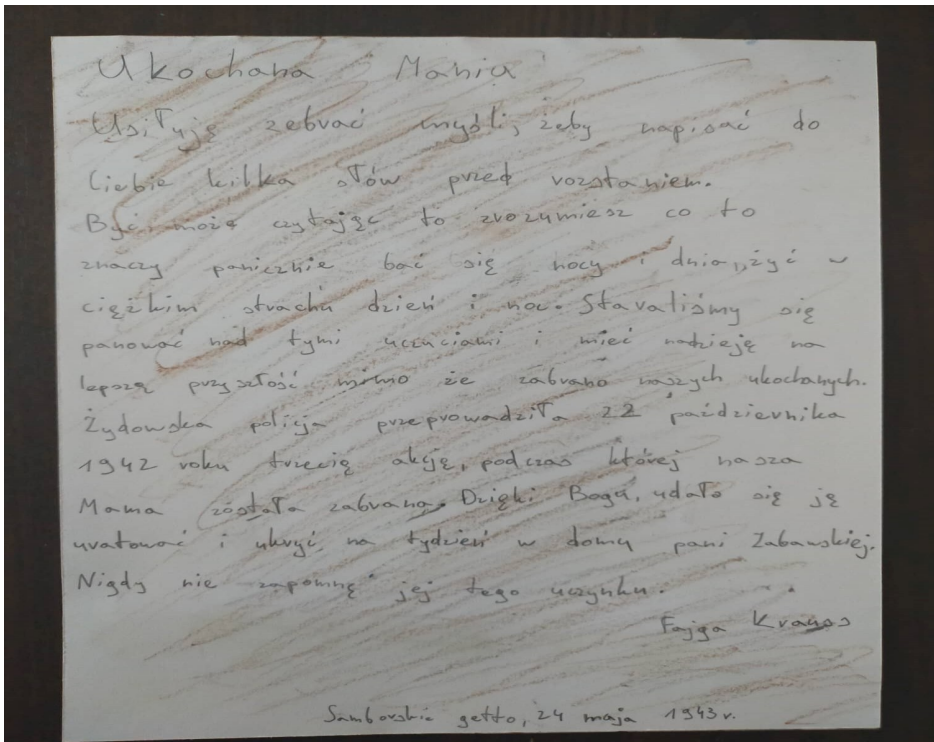 Ukochana Maniu
Usiłuję zebrać myśli, żeby napisać do
Ciebie kilka słów przed rozstaniem.
Być może czytając to zrozumiesz co to
znaczy panicznie bać się nocy i dnia, żyć w
ciężkim strachu dzień i noc. Staraliśmy się
panować nad tymi uczuciami i mieć nadzieję na
lepszą przyszłość mimo że zabrano naszych ukochanych.
Żydowska policja przeprowadziła 22 października
1942 roku trzecią akcję, podczas której nasza
Mama została zabrana. Dzięki Bogu, udało się ją
uratować i ukryć na tydzień w domu pani Zabawskiej.
Nigdy nie zapomnę jej tego uczynku.
Fajga Krauss
Samborskie getto, 24 maja 1943 r.